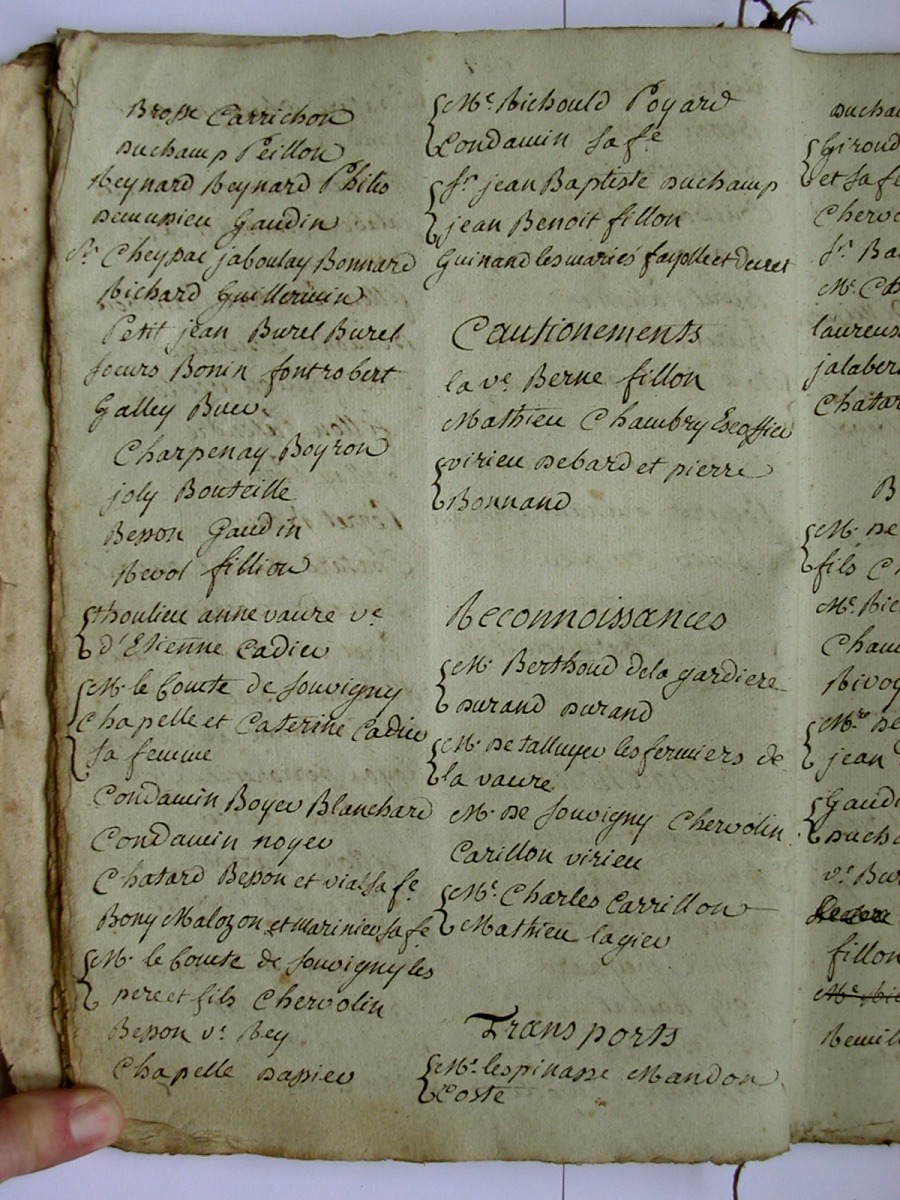 Brosse Carrichon
Duchamp Peillon
Reynard Reynard Philis
Demussieu Gaudin
Sr. Cheyssac jaboulay Bonnard
Richard Guillermin
Petit jean Burel Burel
soeurs Bonin fontrobert
Galley Buer
Charpenay Boyron
joly Bouteille
Besson Gaudin
Revol fillion
thoulieu anne vaure ve.
d'Etienne Cadier
Mr. le Comte de Souvigny
Chapelle et Caterine Cadier
sa femme
Condamin Boyer Blanchard
Condamin noyer
Chatard Besson et vial sa fe.
Bony Malozon et marinier sa fe
Mr. le Comte de Souvigny les
pere et fils Chervolin
Besson ve. Rey
Chapelle dassier
Me. Richould Poyard
Condamin sa fe.
Sr. jean Baptiste Duchamp
jean Benoit fillon
Guinand les mariés fayolle et decret
Cautionements
la ve. Berne fillon
Mathieu Chambry Escoffier
virieu debard et pierre
Bonnand
Reconnoissances
Mr. Berthoud dela gardiere
durand durand
Mr. de talluyer les fermiers de
la vaure
Mr. de Souvigny Chervolin
Carillon virieu
Me. Charles Carrillon
Mathieu lagier
Transports
Me. lespinasse Mandon
Coste
Ducha
Giroud
et sa f
Chervo
Sr. Ba
laureus
jalaber
Chatar
B
Mr. De
fils C
Cham
Rivoy
jean
Gaudi
Ducha
fillon